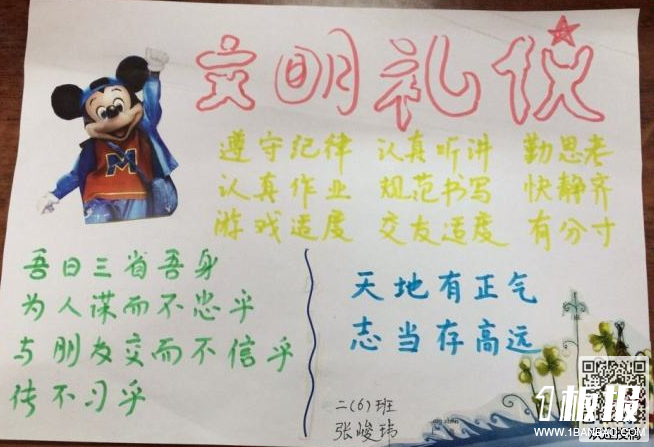 文明礼仪
遵守纪律 认真听讲 勤思考
认真作业 规范书写 快静齐
游戏适度 交友适度 有分寸
吾日三省吾身
为人谋而不忠乎
与朋友交而不信乎
传不习乎
天地有正气
志当存高远
二(6)班
张峻玮
M
1板报
WWW.1BANBAO.COM